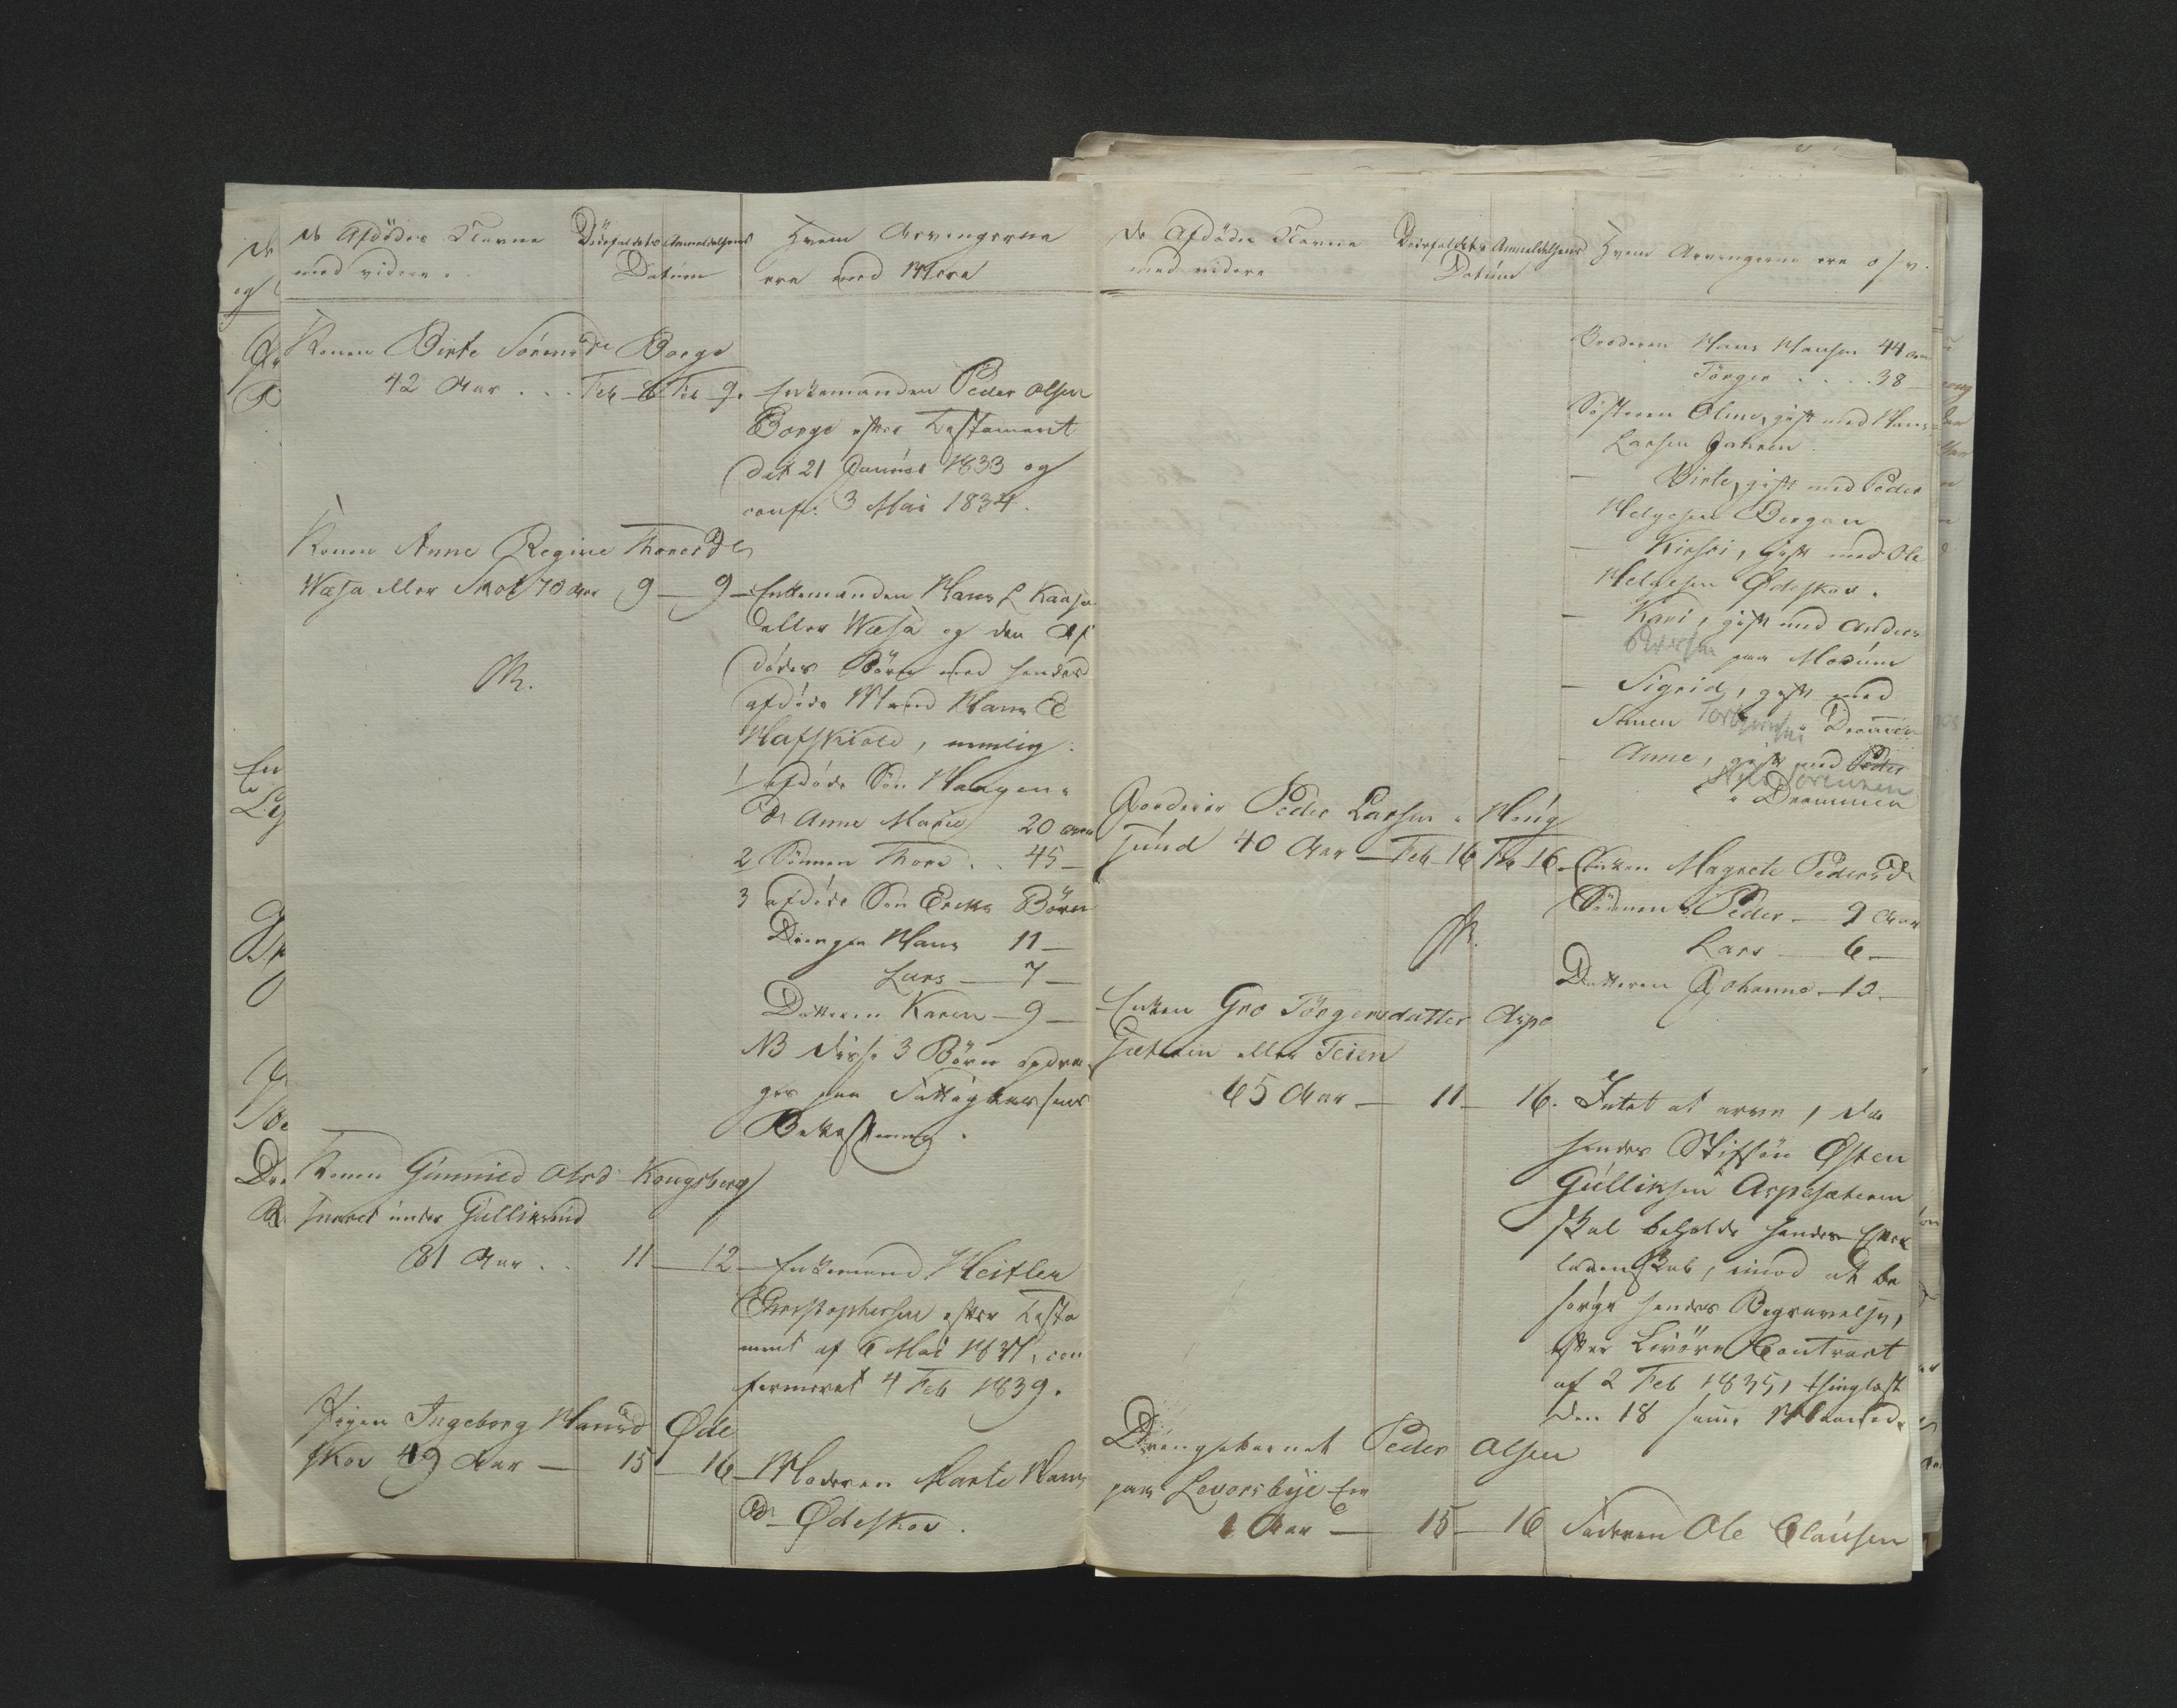 De Afdødes Navne
med videre.
Dødsfaldets Anmeldelsens
Datúm
Hvem Arvingerne
ere med Mere
Konen Birte Sørensdr Borge
42 Aar . . Feb 6 Feb 9. Enkemanden Peder Olsen
Borge efter Testament
dat 21 Januar 1833 og
conf: 3 Mai 1834.
Konen Anne Regine Thoresdr
Wæsa eller Skot 70 Aar 9 — 9 — Enkemanden Hans L Kaasa
eller Wæsa og den Af
dødes Børn med hendes
afdøde Mand Hans E
Hafskiold, nemlig:
1 afdøde Søn Haagens
Dr Anne Marie 20 Aar
2 Sønnen Thore . . 45 —
3 afdøde Søn Ericks Børn
Drengen Hans 11 —
Lars — 7 —
Datteren Karen — 9 —
NB disse 3 Børn opdra
ges paa Fattigkassens
Bekostning.
Konen Gunnild Olsd Kongsberg
Hvored under Gullikrud
81 Aar . . 11 — 12 — Enkemand Heitler
Christophersen efter Testa
ment af 6 Mai 1837, con
firmeret 4 Feb 1839.
Pigen Ingeborg Hansd Øde
skov 49 Aar — 15 — 16 — Moderen Marte Hans
dr Ødeskov.
De Afdødes Navne
med videre
Dødsfaldets Anmeldelsens
Datúm
Hvem Arvingerne ere osv.
Broderen Hans Hansen 44 Aar
Törger . . . 38 —
Søsteren Oline, gift med Hans
Larsen Jahren.
— Birte, gift med Peder
Helgesen Bergan
— Kirsti, gift med Ole
Helgesen Ødeskov.
— Kari, gift med Anders
paa Modum
— Sigrid, gift med
Simen Torbjørnsen i Drammen
— Anne, gift med Peder
Sørensen
i Drammen
Gaardeier Peder Larsen i Houg
sund 40 Aar — Feb 16 Feb 16 — Enken Magrete Pedersdr
Sønnen Peder — 9 Aar
Lars — 6 —
Datteren Johanne — 12 —
Enken Gro Törgersdatter Aspe
sæterin eller Teien
65 Aar — 11 — 16. Intet at arve, da
hendes Stifsøn Østen
Gulliksen Aspesæteren
skal beholde hendes Efter
ladenskab, imod at be
sørge hendes Begravelse,
efter Livøre Contract
af 2 Feb 1835, thinglæst
den 18 samme Maaned.
Drengebarnet Peder Olsen
paa Levorsbye Eie
1 Aar — 15 — 16 Faderen Ole Clausen